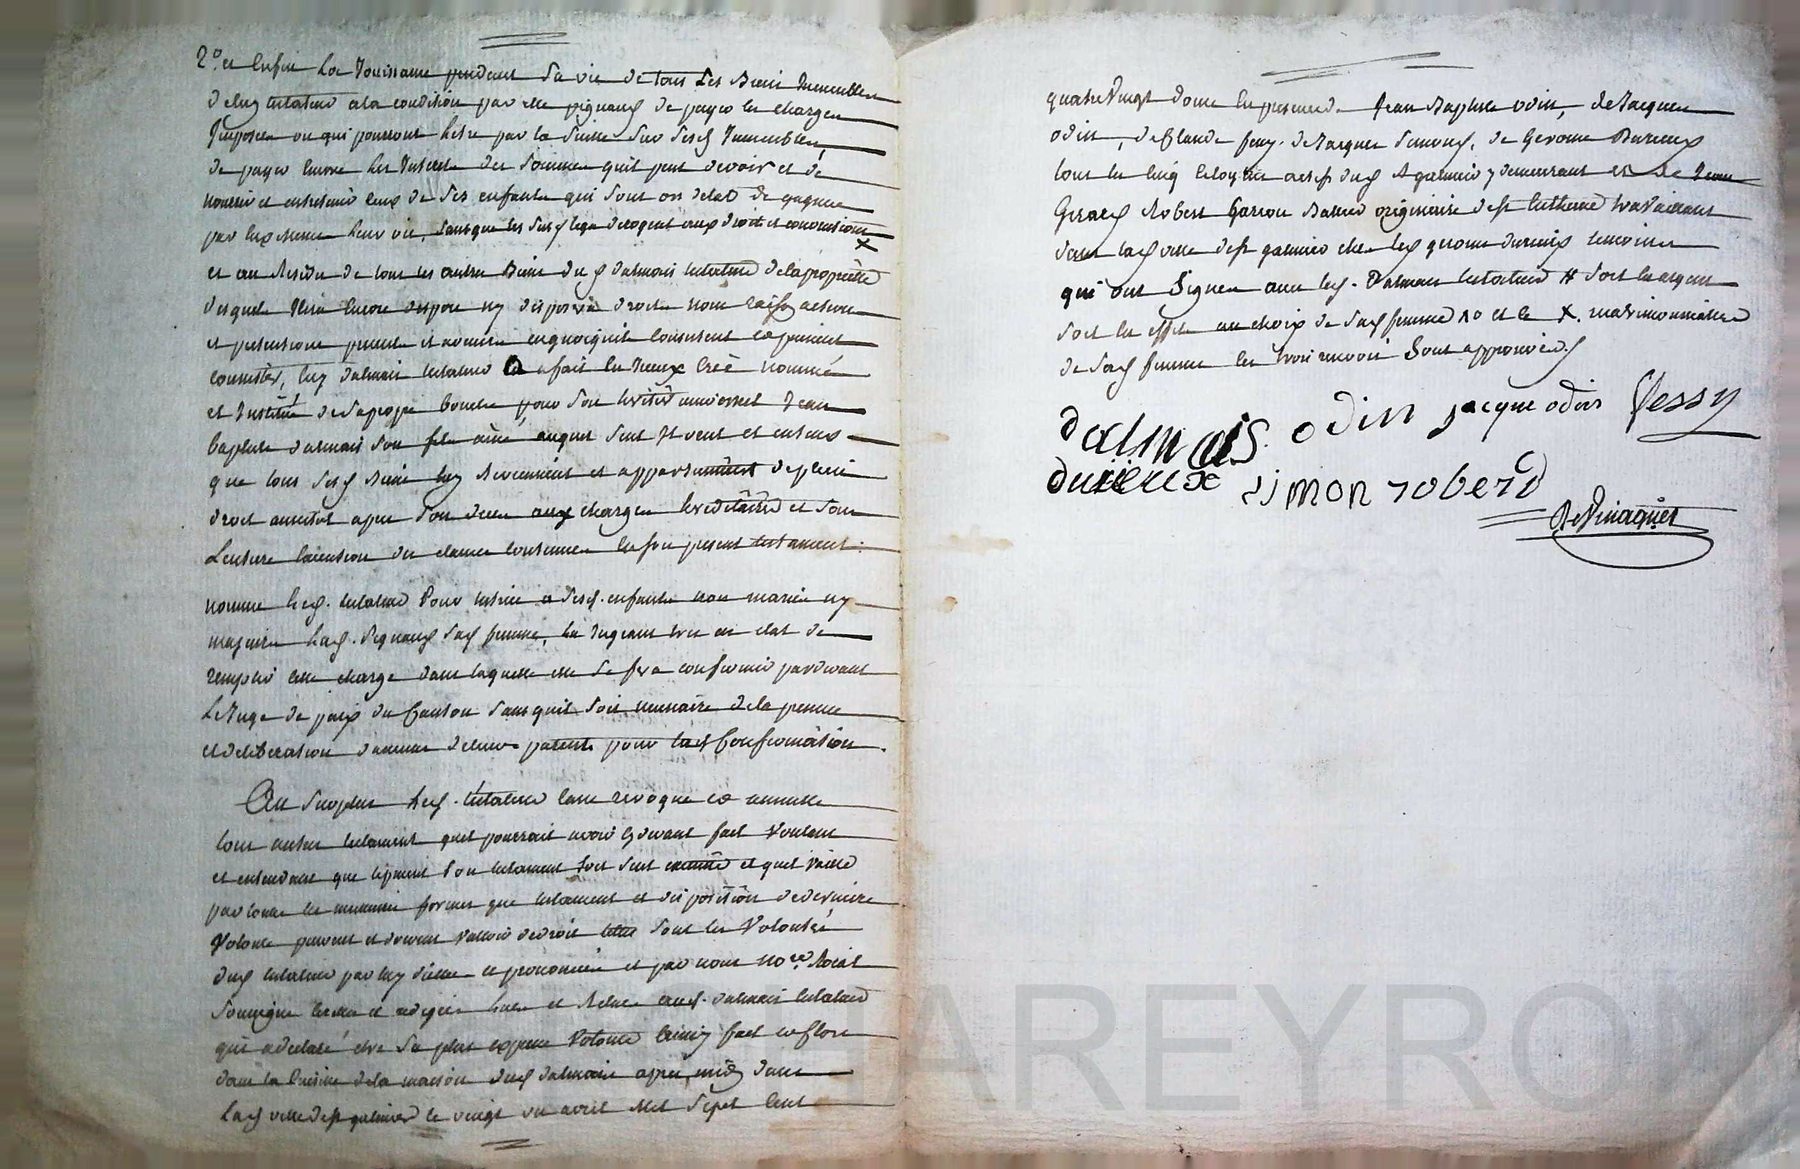 2° et Enfin La Jouissance pendant Sa vie de tous Les Biens Immeubles
deluy testateur a la condition par elle pignaud de payer les charges
Imposées ou qui pourront L'être par la Suitte Sur Sesd Immeubles,
de payer Encore Les Interets des Sommes quil peut devoir et de
nourrir et entretenir ceux de Ses enfants qui Sont ors d'etat de gagner
par Eux memes Leur vie, Sans que les Susd legs derogent aux droits et conventions X
et au Residu de tous les autres Biens dud dalmais testateur de la propriété
desquels Il n'a Encore disposé ny disposera droits noms raisons actions
et pretentions presents et avenirs en quoi quils Consistent et puissent
Consister, luy dalmais testateur a fait les Siens Créé nommé
et Institué de Sa propre bouche pour Son heritier universel Jean
baptiste dalmais Son fils ainé, auquel Il veut et entend
que tous Sesd Biens luy Reviennent et appartiennent de plein
droit aussitot apres Son deces aux charges hereditaires et Sous
L'entiere execution des clauses Contenues En Son present testament.
nomme Led. testateur Pour tutrice a Sesd. enfants non mariés ny
majeurs Lad. Pignaud Sad femme, La Jugeant tres en etat de
remplir cette charge dans laquelle elle Se fera confirmer pardevant
Le Juge de paix du Canton Sans quil Soit necessaire de la presence
et deliberation d'aucuns de leurs parents pour lad Confirmation.
Au Surplus Led. testateur Casse revoque et annulle
tous autres testaments quil pourrait avoir Cy devant fait voulant
et entendant que le present Son testament Soit Seul executé et quil vaille
par toutes les meilleures formes que testament et disposition de derniere
Volonté peuvent et doivent valloir de droit telles Sont les Volontés
dud testateur par luy dittes et prononcées et par nous no.re Roial
Soussigné Ecrites et redigées Lues et Relues aud. dalmais testateur
qui a declaré etre Sa plus expresse Volonté Ainsy fait et clos
dans la Cuisine de la maison dud dalmais apres midy dans
Lad ville de St galmier le vingt un avril Mil Sept Cent
quatre Vingt douze En presence de Jean Baptiste odin, de Jacques
odin, de Claude fessy. de Jacques Simond, de Gerome Durieux
tous les cinq Citoyens actifs dud St galmier y demeurant et de Jean
Robert Garcon Originaire de St travaillant
dans lad ville de St galmier chez led gerome durieux temoins
qui ont Signé avec led. Dalmais testateur # Soit En argent
Soit En effets au choix de Sad femme et le X. matrimoniaux
de Sad femme les trois renvois Sont approuvés
dalmais. odin jacque odin fessy
durieux Simon robert